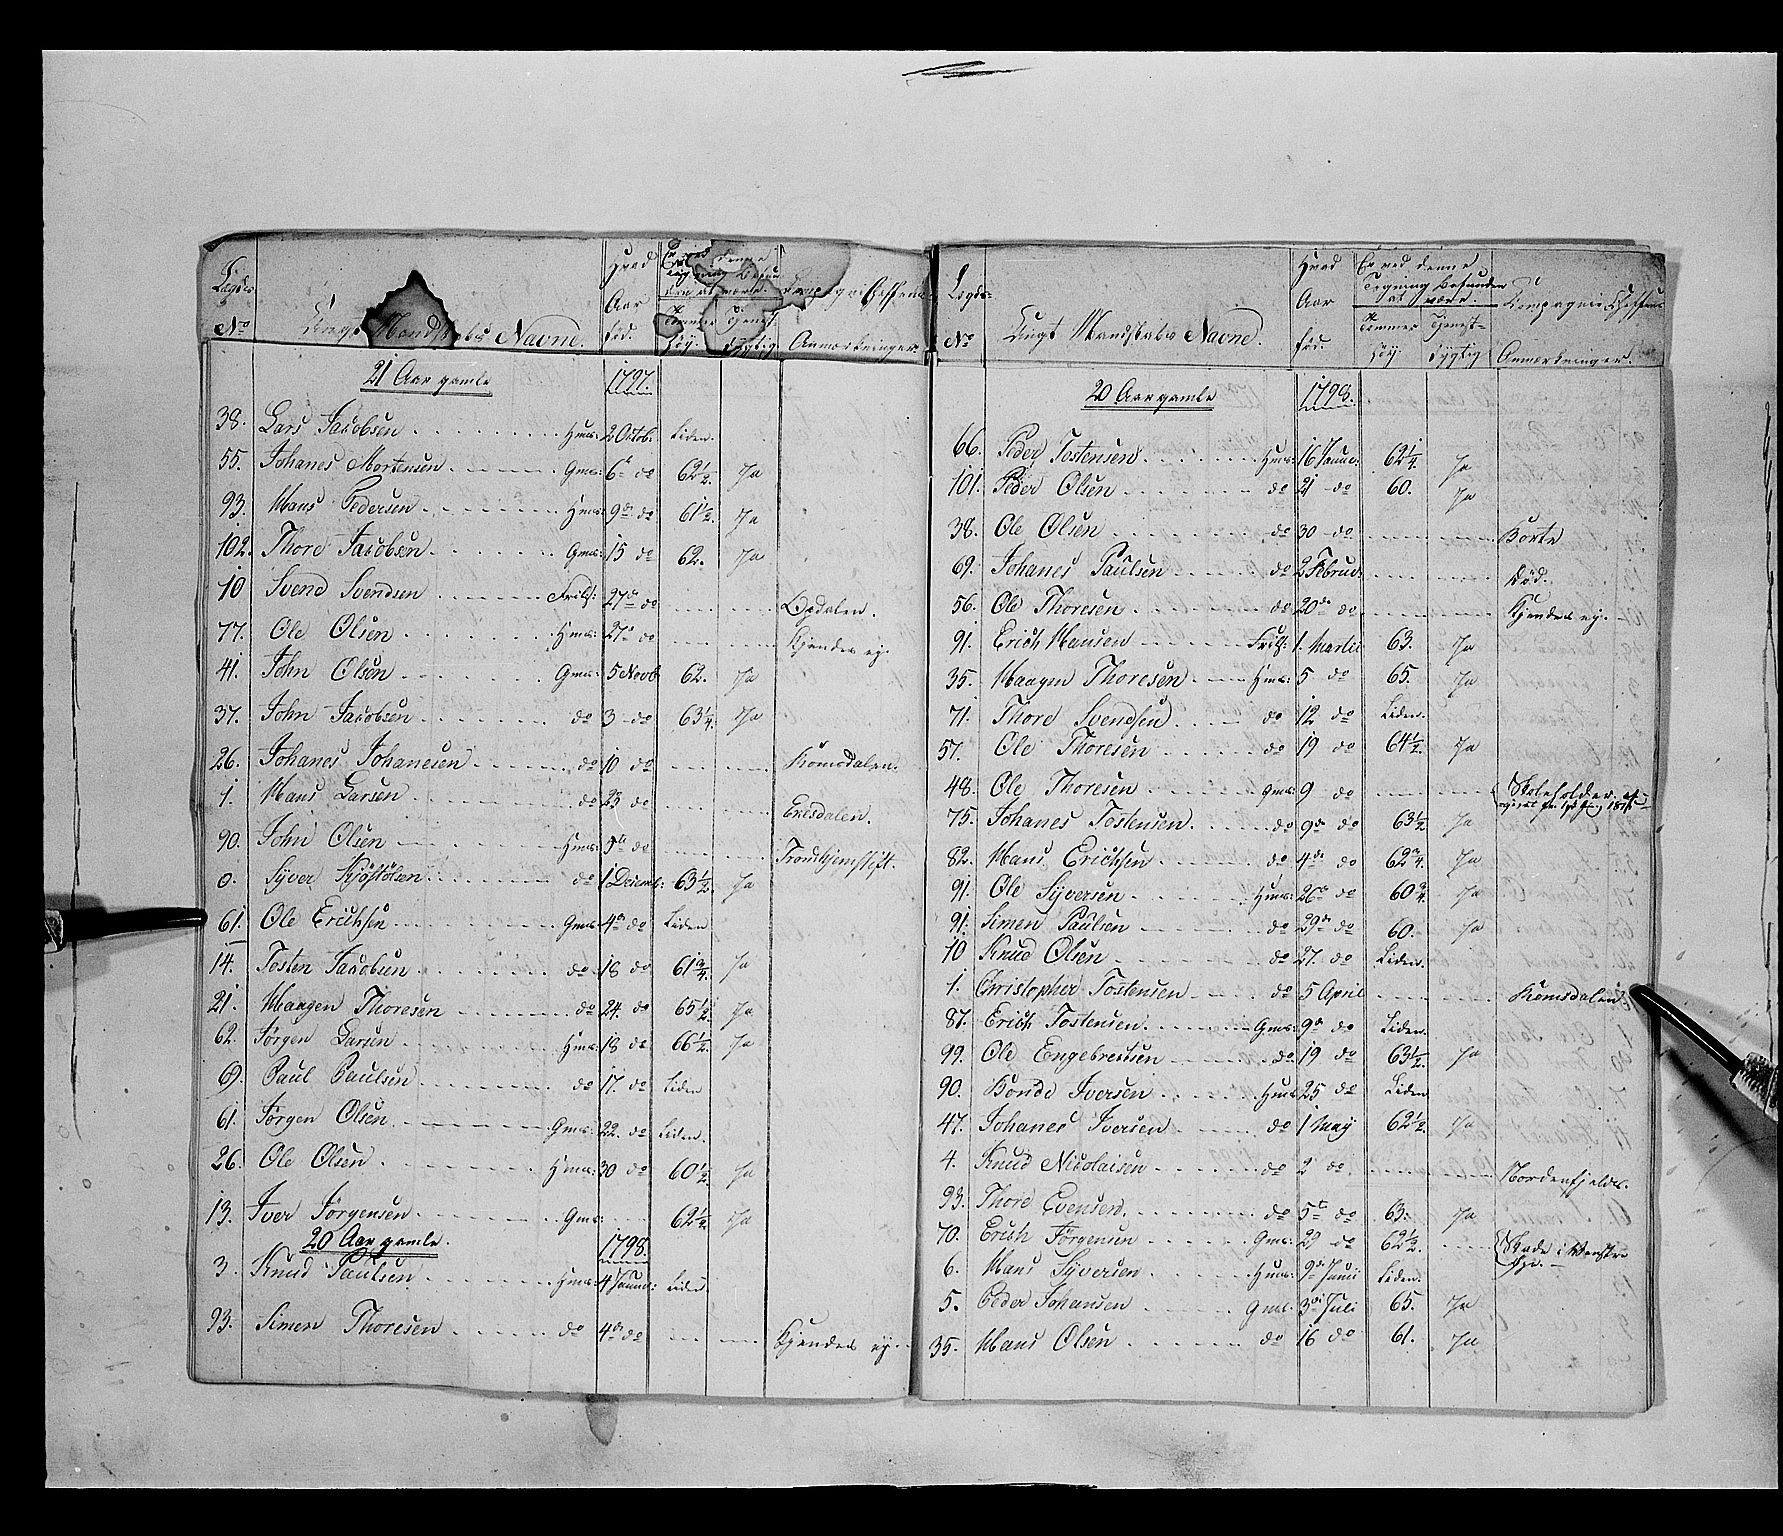 Lægds No
Ungt Mandskabs Navne.
Hvad Aar fød.
Er ved denne Tegning befunden at være.
Tommer høy.
Tjenest dygtig
Compagnie Cheffens Anmærkninger
21 Aar gamle 1797.
38. Lars Jacobsen Hmd: 2 Octob: Liden.
55. Johanes Mortensen Gmd: 6te do 62½. Ja
93. Hans Pedersen Hmd: 9de do 61½. Ja
102. Thore Jacobsen Gmd: 15 do 62. Ja
10 Svend Svendsen Frilsf: 27de do Opdalen.
77. Ole Olsen Hmd: 27e do Kjendes ej.
41. John Olsen Gmd: 5 Novb 62. Ja
37. John Jacobsen do 3 do 63¼. Ja
26. Johanes Johanesen do 10 do Romsdalen.
1. Hans Larsen do 23 do Eresdalen.
90. John Olsen Hmd: 5te do Trondhjemstift.
0. Syver Kjøstølsen do 1 Decemb: 63½. Ja
61. Ole Erichsen Gmd: 4de do Liden
14. Tosten Jacobsen do 18 do 61¾. Ja
21. Haagen Thoresen do 24. do 65½. Ja
62. Jørgen Larsen Hmd: 18 do 66½. Ja
69. Paul Paulsen do 17. do Liden
61. Jørgen Olsen Gmd: 22. do Liden.
26. Ole Olsen Hmd: 30 do 60½. Ja
13. Iver Jørgensen Gmd: 62½. Ja
20 Aar gamle. 1798.
3. Knud Paulsen Hmd: 4 Januar: Liden
93. Simen Thoresen do 4de do Kjendes ej.
Lægds No
Ungt Mandskabs Navne.
Hvad Aar fød.
Er ved denne Tegning befunden at være.
Tommer høy.
Tjenest-dygtig
Compagnie Cheffens Anmærkninger.
20 Aar gamle 1798.
66. Peder Tostensen Hmd: 16 Januar: 62¼. Ja
101. Peder Olsen do 21 do 60. Ja
38. Ole Olsen do 30 do Borte
69. Johanes Paulsen do 2 Februar: Død.
56. Ole Thoresen do 20de do Kjendes ej.
91. Erich Hansen Frilsf: 1. Martii 63. Ja
35. Haagen Thoresen Hmd: 5 do 65. Ja
71. Thore Svendsen do 12 do Liden.
57. Ole Thoresen do 19 do 64½. Ja
48. Ole Thoresen Gmd: 9 do Skoleholder
75. Johanes Tostensen do 9de do 63½ Ja
82. Hans Erichsen do 4de do 62¾. Ja
91. Ole Syversen Hmd: 26de do 60¾. Ja
91. Simen Paulsen do 29de do 60. Ja
10 Knud Olsen do 27. do Liden.
1. Christopher Tostensen do 5 April Romsdalen
87. Erich Tostensen Gmd: 9de do Liden.
99. Ole Engebretsen do 19 do 63½. Ja
90. Bonde Iversen Hmd: 25 do Liden
47. Johanes Iversen do 1 May 62½. Ja
4. Knud Nicolaisen do 2 do Nordenfjelds.
93. Thore Evensen do 5te do 63. Ja
70. Erich Jørgensen Gmd: 29 do 62½. Skade i Venstre
6. Hans Syversen Hmd: 9de Junii Liden.
5. Peder Johansen Gmd: 3de Juli 65. Ja
35. Hans Olsen do 16 do 61. Ja